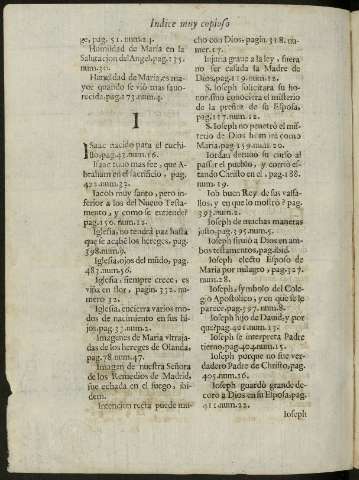 Indice muy copioso
ge, pag. 51. num. 4.
Humildad de Maria en la
Salutacion del Angel, pag. 135.
num. 30.
Humildad de Maria, es ma-
yor quando se viò mas favo-
recida, pag. 173. num. 4.
I
ISaac nacido para el cuchi-
llo, pag. 42. num. 16.
Isaac tuuo mas fee, que A-
braham en el sacrificio, pag.
472. num. 32.
Iacob muy santo, pero in-
ferior a los del Nueuo Testa-
mento, y como se entiende?
pag. 150. num. 12.
Iglesia, no tendrà paz hasta
que se acabē los hereges, pag.
398. num. 9.
Iglesia, ojos del mūdo, pag.
487. num. 56.
Iglesia, siempre crece, es
viña en flor, pagin. 352. nu-
mero 32.
Iglesia, encierra varios mo-
dos de nacimiento en sus hi-
jos, pag. 37. num. 2.
Imagenes de Maria vltraja-
das de los hereges de Olanda,
pag. 78. num. 47.
Imagen de nuestra Señora
de los Remedios de Madrid,
fue echada en el fuego, ibi-
dem.
Intencion recta puede mu-
cho con Dios, pagin. 318. nu-
mer. 17.
Injuria graue a la ley, fuera
no ser casada la Madre de
Dios, pag. 119. num. 12.
S. Ioseph solicitara su ho-
nor, sino conociera el misterio
de la preñez de su Esposa,
pag. 117. num. 12.
S. Ioseph no penetrò el mis-
terio de Dios hasta
Maria, pag. 159. num. 20.
Iordan detuuo su curso al
passar el pueblo, y corriò es-
tando Christo en el, pag. 188.
num. 19.
Iob buen Rey de sus vassa-
llos, y en que lo mostrò? pag.
393. num. 2.
Ioseph de muchas maneras
justo, pag. 395. num. 5.
Ioseph siruiò a Dios en am-
bos testamentos, pag. ibid.
Ioseph electo Esposo de
Maria por milagro, pag. 327.
num. 28.
Ioseph, symbolo del Cole-
gio Apostolico, y en que se le
parece, pag. 397. num. 8.
Ioseph hijo de Dauid, y por
què? pag. 401. num. 13.
Ioseph se interpreta Padre
tierno, pag. 404. num. 15.
Ioseph porque no fue ver-
dadero Padre de Christo, pag.
405. num. 16.
Ioseph guardò grande de-
coro a Dios en su Esposa, pag.
411. num. 22.
Ioseph